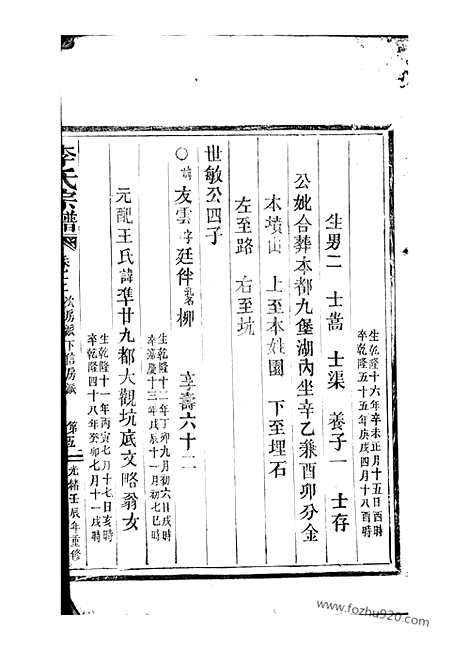 生乾隆十六年辛未正月十五日酉時
卒乾隆五十五年庚戌四月十八酉時
生男二 士蒿 士渠 養子一 士存
公妣合葬本都九堡湖內坐辛乙兼酉卯分金
本墳山 上至本姓園 下至埋石
左至路 右至坑
世敏公四子
○諱友雲字廷伴乳名柳 享壽六十二
生乾隆十二年丁卯九月初六日戌時
卒嘉慶十三年戊辰十一月初七巳時
元配王氏諱準廿九都大觀坑底文略翁女
生乾隆十一年丙寅七月十七日亥時
卒乾隆四十八年癸卯七月十一戌時
李氏宗譜 卷之二 次房派下信房派 第五 光緒壬辰年重修
www.fozhu920.com